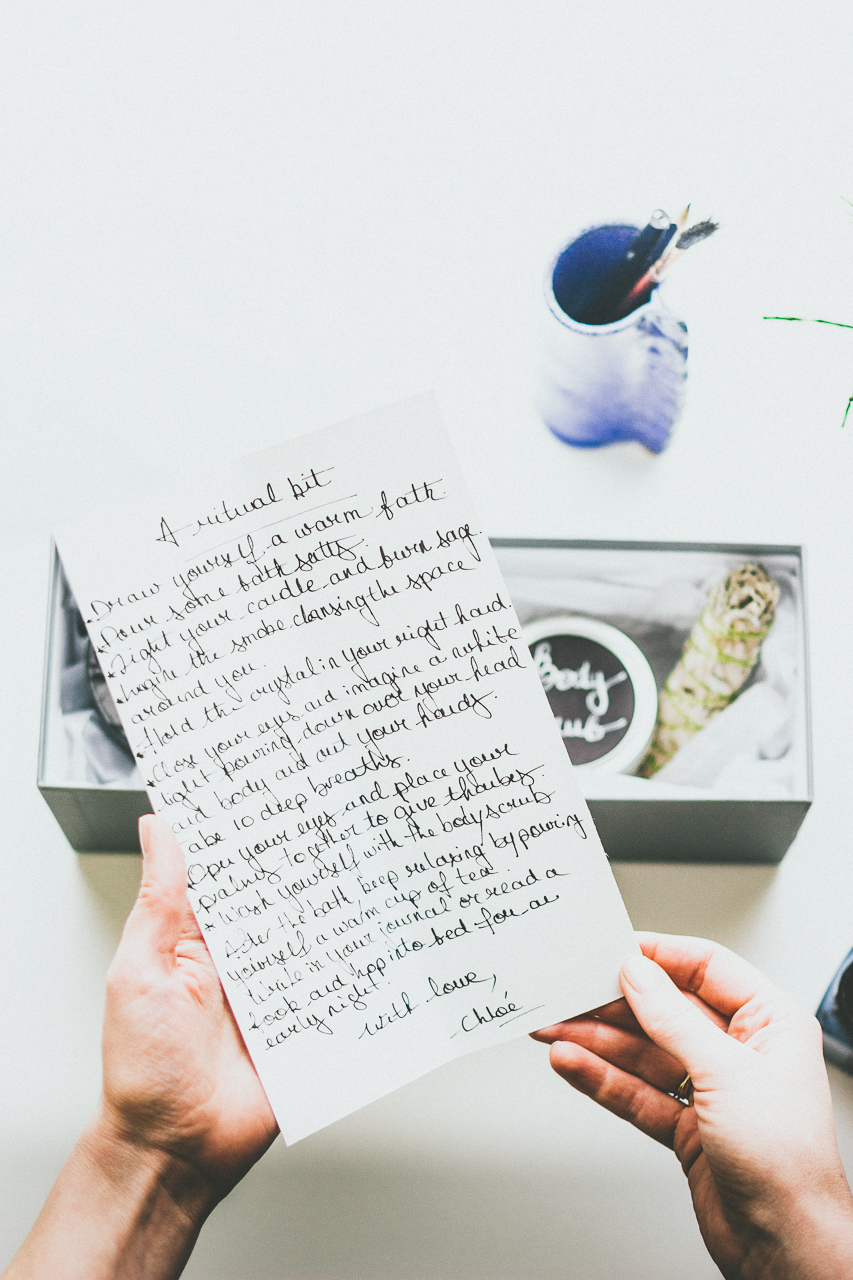 A ritual kit
• Draw yourself a warm bath.
• Pour some bath salts.
• Light your candle and burn sage.
• Imagine the smoke clansing the space
around you.
• Hold the crystal in your right hand.
• Close your eyes and imagine a white
light pouring down over your head
and body and out your hands.
Take 10 deep breaths.
Open your eyes and place your
palms together to give thanks.
• Wash yourself with the body scrub
After the bath keep relaxing by pouring
yourself a warm cup of tea.
Write in your journal or read a
book and hop into bed for an
early night.
with love,
Chloé
Body